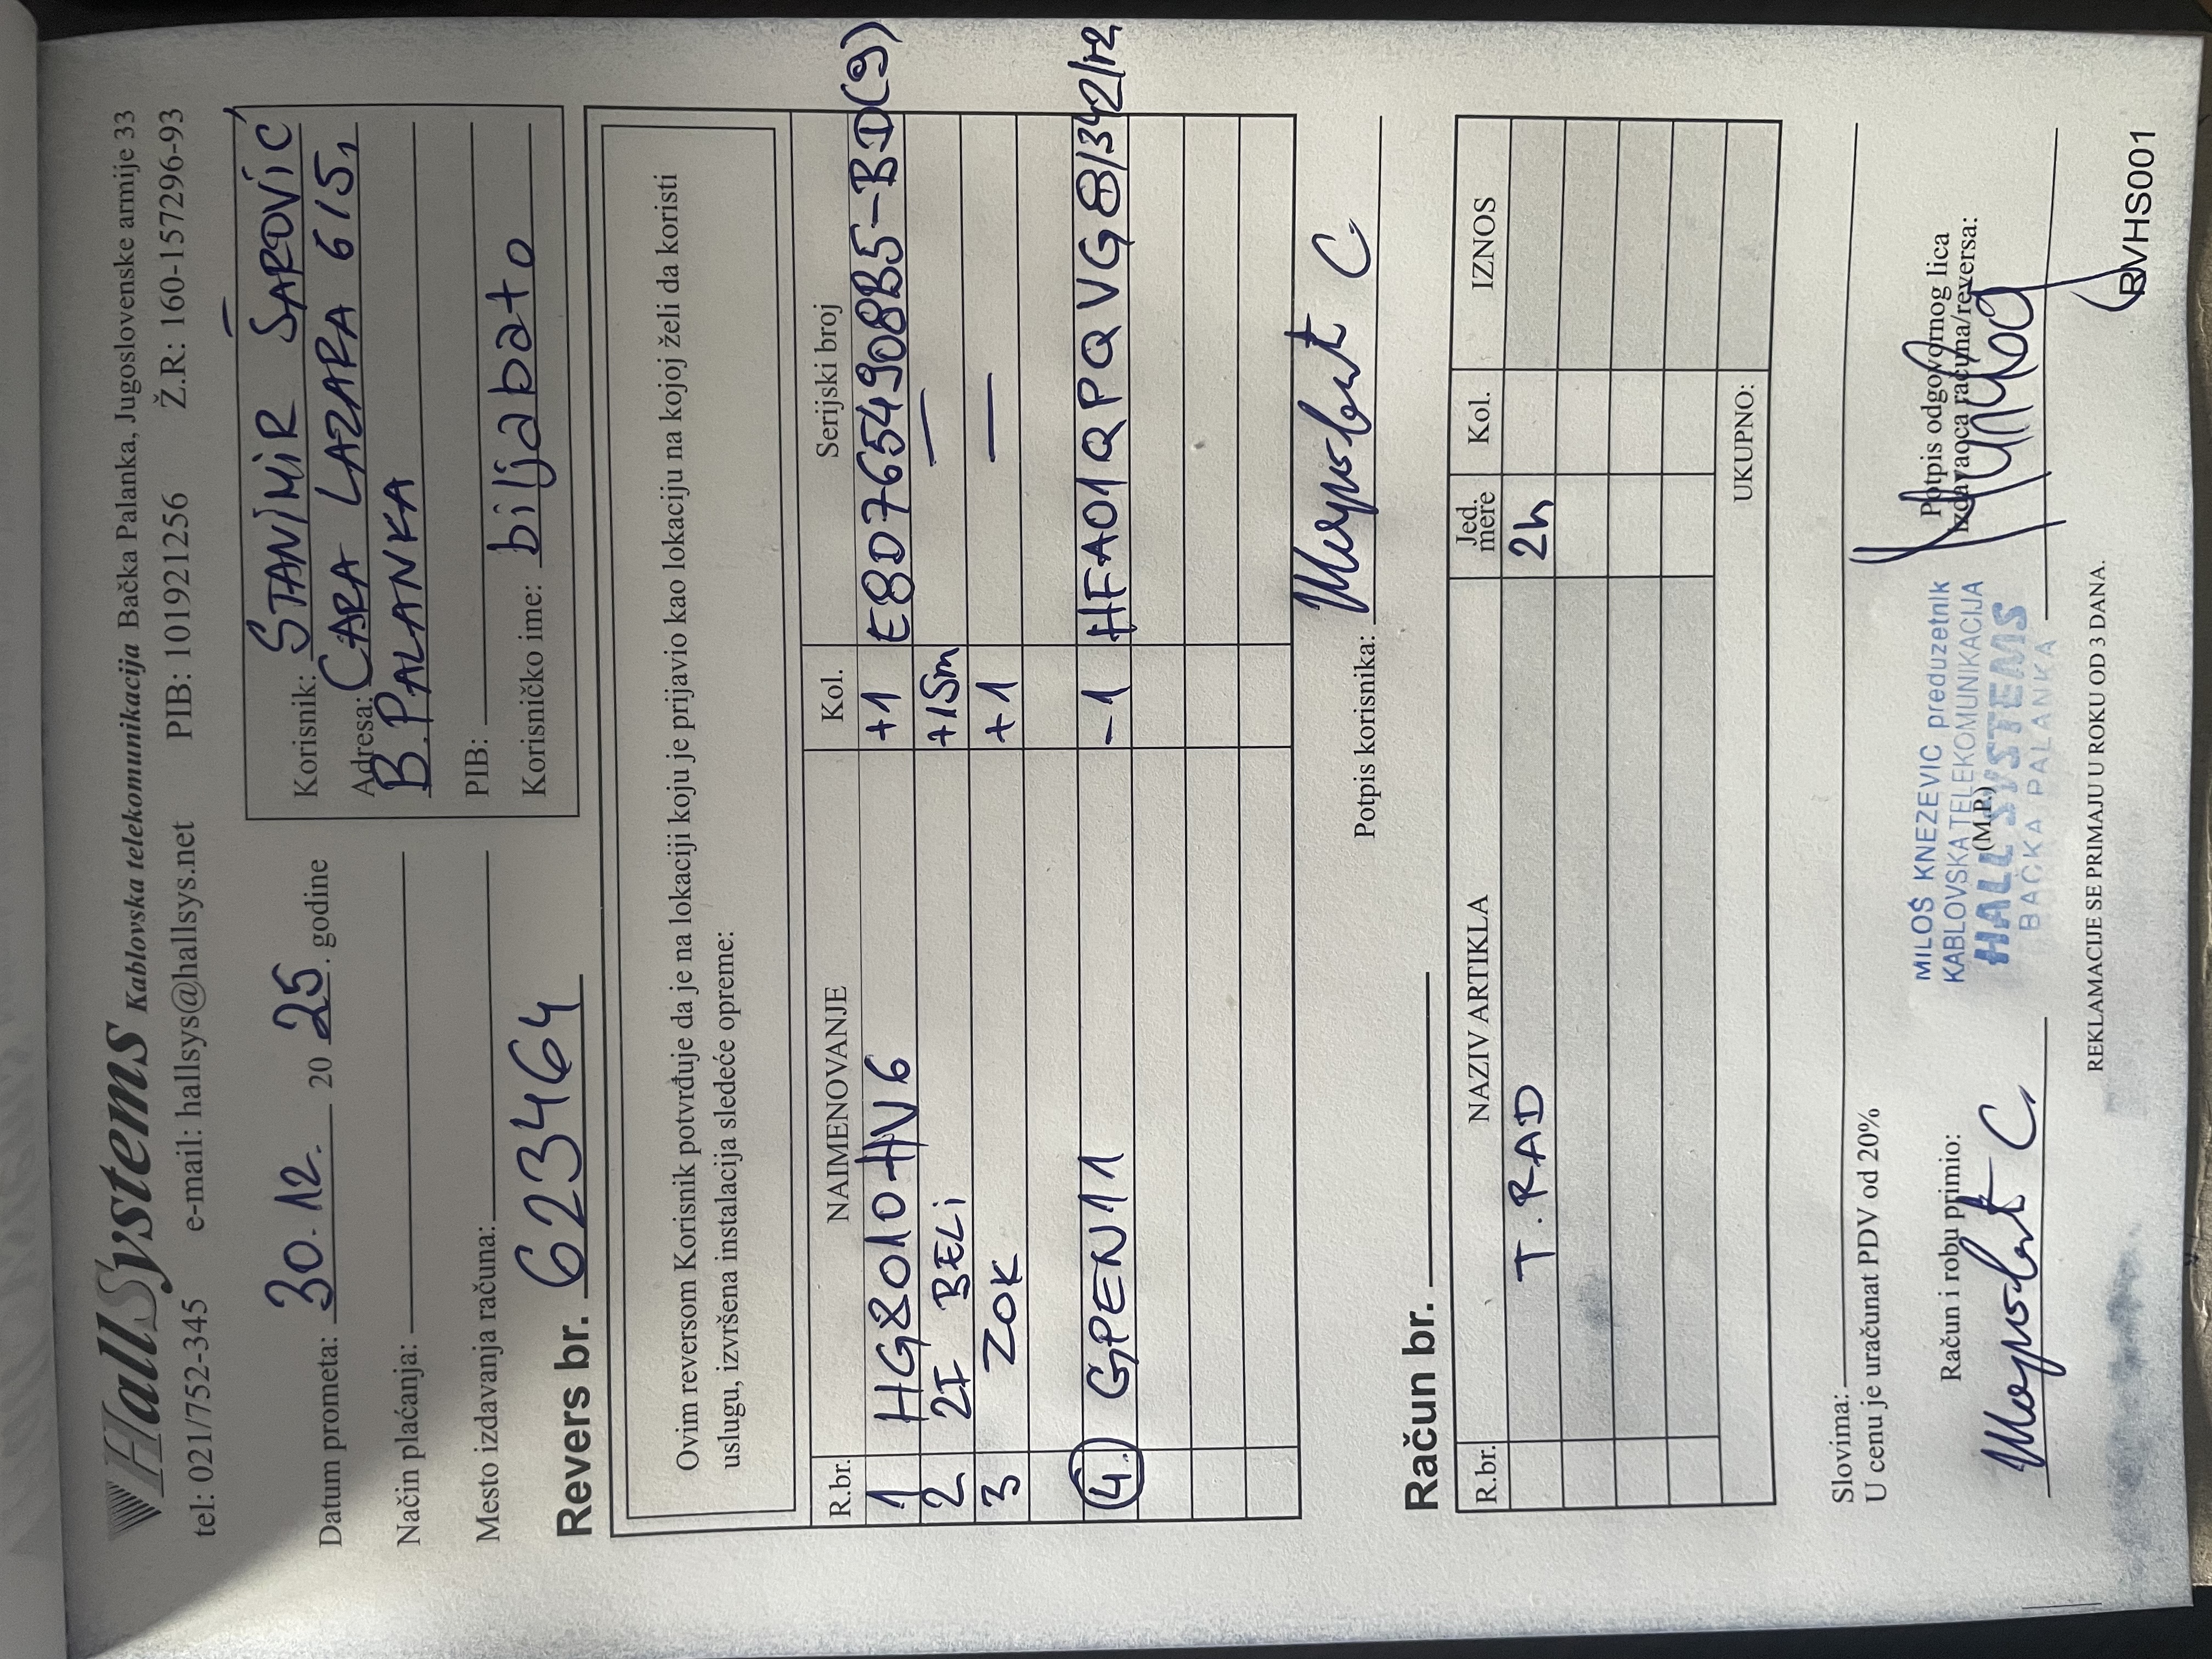 HallSystems Kablovska telekomunikacija Bačka Palanka, Jugoslovenske armije 33
tel: 021/752-345 e-mail: hallsys@hallsys.net PIB: 101921256 Ž.R: 160-157296-93
Datum prometa: 30.12. 20 25. godine
Način plaćanja:
Mesto izdavanja računa:
Korisnik: STANIMIR ŠAROVIĆ
Adresa: CARA LAZARA 615,
B. PALANKA
PIB:
Korisničko ime: biljabato
Revers br. 623464
Ovim reversom Korisnik potvrđuje da je na lokaciji koju je prijavio kao lokaciju na kojoj želi da koristi
uslugu, izvršena instalacija sledeće opreme:
R.br. NAIMENOVANJE Kol. Serijski broj
1 HG8010HV6 +1 E8D7654908B5-BD(9)
2 2F BELI +15m —
3 ZOK +1 —
4. GPEN11 -1 HFA01QPQVG8/342/r2
Potpis korisnika:
Račun br.
R.br. NAZIV ARTIKLA Jed. mere Kol. IZNOS
T. RAD 2h
UKUPNO:
Slovima:
U cenu je uračunat PDV od 20%
Račun i robu primio:
(M.P.)
MILOŠ KNEZEVIC preduzetnik
KABLOVSKA TELEKOMUNIKACIJA
HALL SYSTEMS
BAČKA PALANKA
Potpis odgovornog lica
izdavaoca računa/reversa:
REKLAMACIJE SE PRIMAJU U ROKU OD 3 DANA.
RVHS001